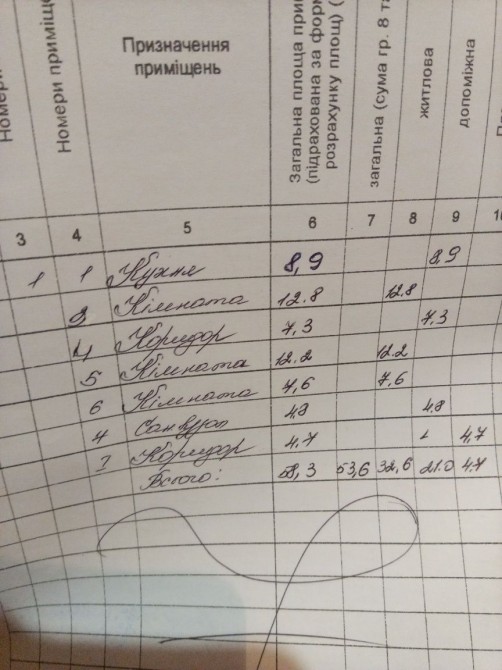 Номери
Номери приміще
Призначення
приміщень
Загальна площа прим
(підрахована за форм
розрахунку площ) (
загальна (сума гр. 8 та
житлова
допоміжна
3 4 5 6 7 8 9 10
1 1 Кухня 8,9 8,9
3 Кімната 12.8 12.8
4 Коридор 7,3 7,3
5 Кімната 12.2 12.2
6 Кімната 7,6 7,6
4 Санвузол 4,8 4,8
I Коридор 4,7 4,7
Всього: 58,3 53,6 32,6 21.0 4.7